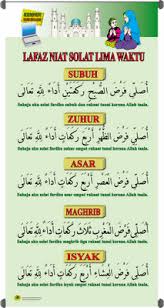 LAFAZ NIAT SOLAT LIMA WAKTU
SUBUH
أُصَلِّي فَرْضَ الصُّبْحِ رَكْعَتَيْنِ أَدَاءً لِلَّهِ تَعَالَى
Sahaja aku solat fardhu subuh dua rakaat tunai kerana Allah taala.
ZUHUR
أُصَلِّي فَرْضَ الظُّهْرِ أَرْبَعَ رَكَعَاتٍ أَدَاءً لِلَّهِ تَعَالَى
Sahaja aku solat fardhu zuhur empat rakaat tunai kerana Allah taala.
ASAR
أُصَلِّي فَرْضَ الْعَصْرِ أَرْبَعَ رَكَعَاتٍ أَدَاءً لِلَّهِ تَعَالَى
Sahaja aku solat fardhu asar empat rakaat tunai kerana Allah taala.
MAGHRIB
أُصَلِّي فَرْضَ الْمَغْرِبِ ثَلَاثَ رَكَعَاتٍ أَدَاءً لِلَّهِ تَعَالَى
Sahaja aku solat fardhu maghrib tiga rakaat tunai kerana Allah taala.
ISYAK
أُصَلِّي فَرْضَ الْعِشَاءِ أَرْبَعَ رَكَعَاتٍ أَدَاءً لِلَّهِ تَعَالَى
Sahaja aku solat fardhu isyak empat rakaat tunai kerana Allah taala.